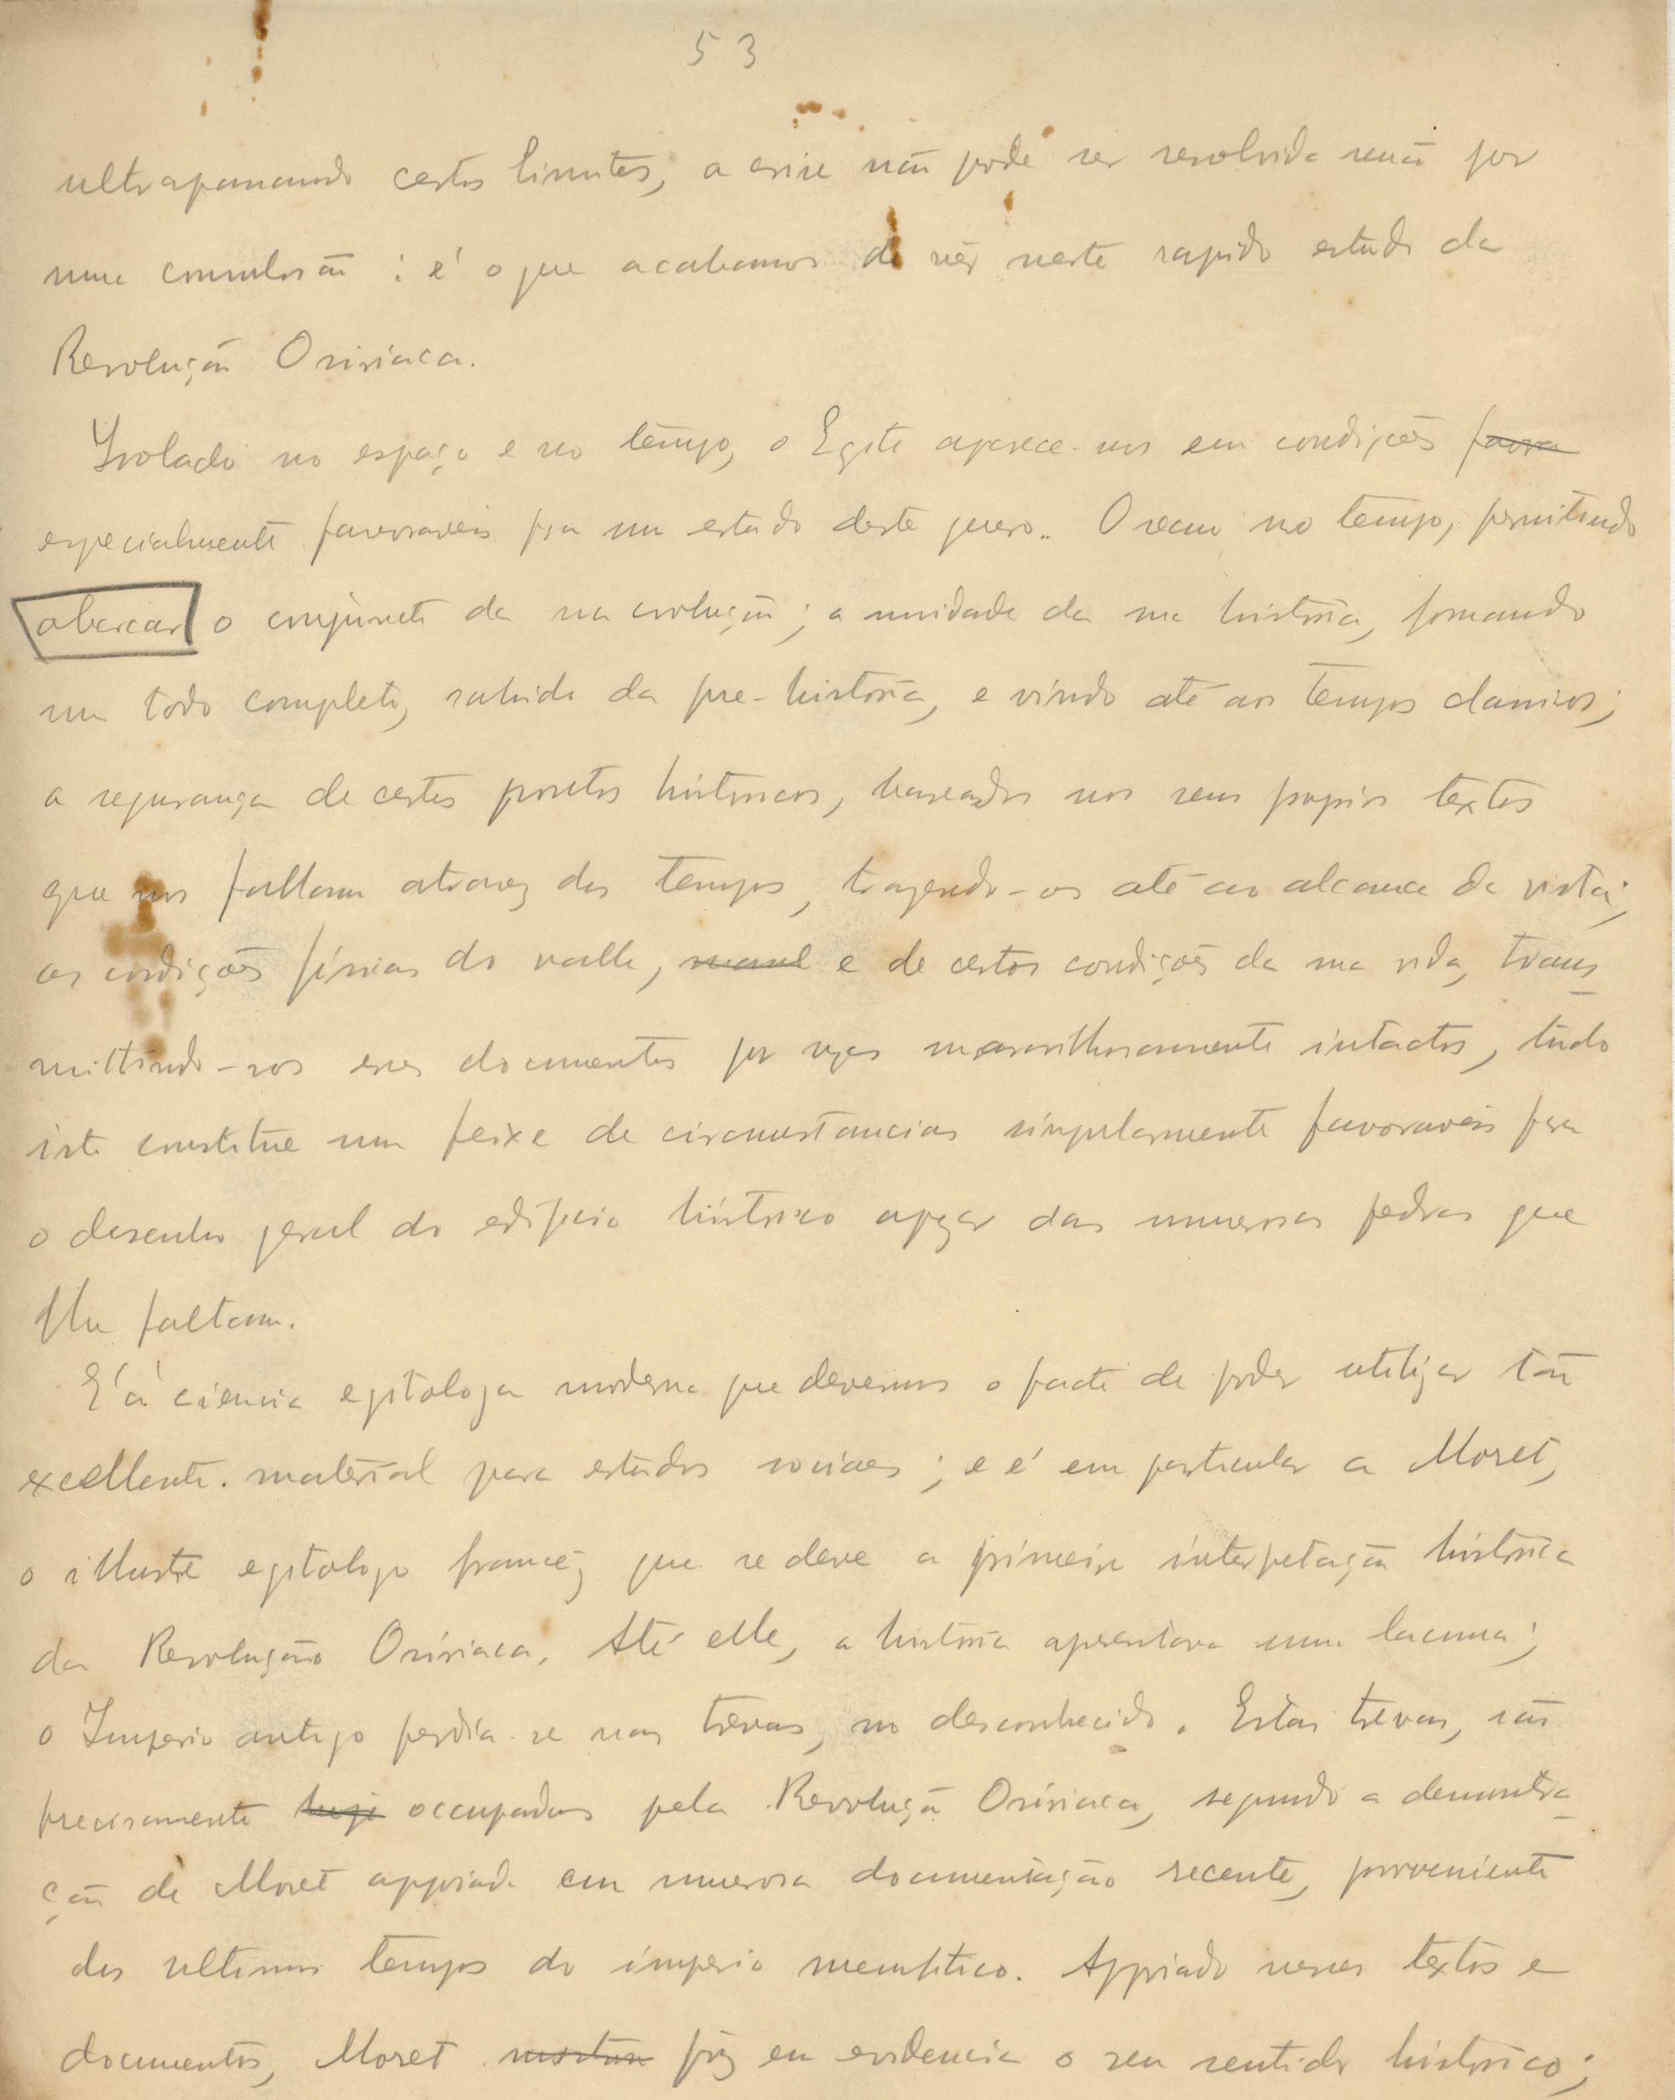 53
ultrapassando certos limites, a crise não pode ser resolvida senão por
uma convulsão : e' o que acabamos de vêr neste rapido estudo da
Revolução Osiriaca.
Isolado no espaço e no tempo, o Egito aparece-nos em condições favora
especialmente favoraveis pra um estudo deste genero.. O recuo no tempo, permitindo
abarcar o conjuncto da sua evolução ; a unidade da sua historia, formando
um todo completo, sahido da pre-historia, e vindo até aos tempos classicos ;
a segurança de certos pontos historicos, baseados nos seus proprios textos
que nos fallam atravez dos tempos, trazendo-os até ao alcance da vista ;
as condições fisicas do valle, e de certas condições da sua vida, trans_
mittindo-nos esses documentos por vezes maravilhosamente intactos, tudo
isto constitue um feixe de circumstancias singularmente favoraveis pra
o desenho geral do edificio historico apezar das numerosas pedras que
lhe faltam.
E' á ciencia egitologa moderna que devemos o facto de poder utilizar tão
excellente. material para estudos sociaes ; e e' em particular a Moret,
o illustre egitologo francêz que se deve a primeira interpetação historica
da Revolução Osiriaca. Até elle, a historia apresentava uma lacuna ;
o Imperio antigo perdia-se nas trevas, no desconhecido. Estas trevas, são
precisamente hoje occupadas pela Revolução Osiriaca, segundo a demonstra_
ção de Moret appoiada em numerosa documentação recente, proveniente
dos ultimos tempos do imperio memfitico. Appoiado nesses textos e
documentos, Moret mostra pôz em evidencia o seu sentido historico ;